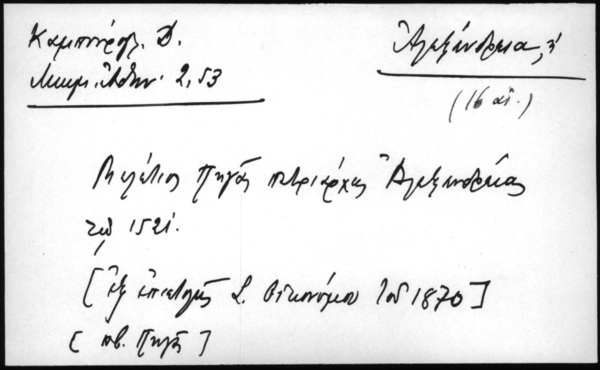 Καμπούρογλ. Δ.
Μνημ. Ἀθην. 2, 53
Ἀλεξάνδρεια, ἡ
(16 αἰ.)
Μελέτιος Πηγᾶς πατριάρχης Ἀλεξανδρείας
τῷ 1521.
[ ἐξ ἐπιστολῆς Σ. Οἰκονόμου τοῦ 1870 ]
[ πβ. Πηγᾶ ]